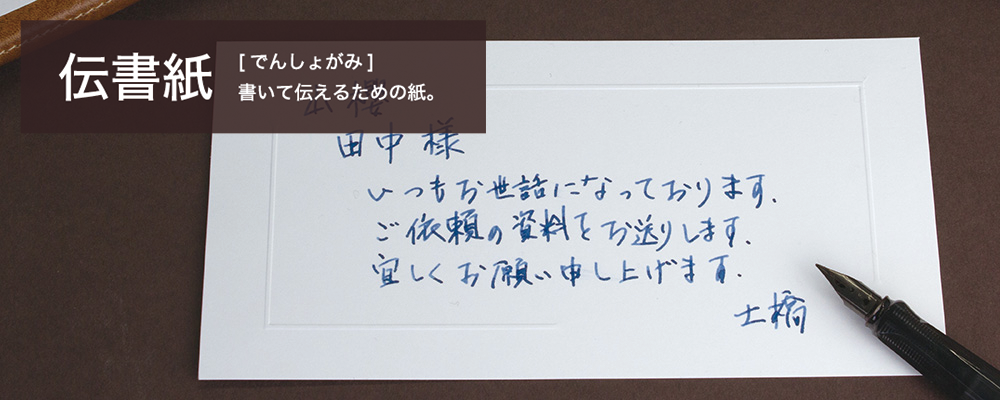 伝書紙
[でんしょがみ]
書いて伝えるための紙。
田中様
いつもお世話になっております.
ご依頼の資料をお送りします.
宜しくお願い申し上げます.
土橋